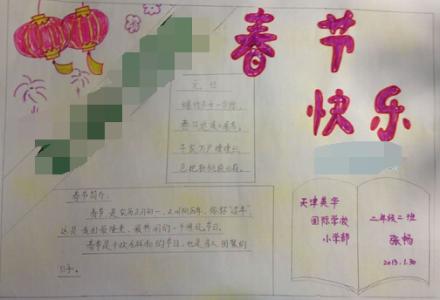 春节
快乐
元日
爆竹声中一岁除，
春风送暖入屠苏。
千家万户曈曈日，
总把新桃换旧符。
春节简介：
春节是农历正月初一，又叫阴历年，俗称“过年”
这是我国最隆重、最热闹的一个传统节日。
春节是个欢乐祥和的节日，也是亲人团聚的
日子。
天津英华
国际学校
小学部
二年级二班
张畅
2013.1.30